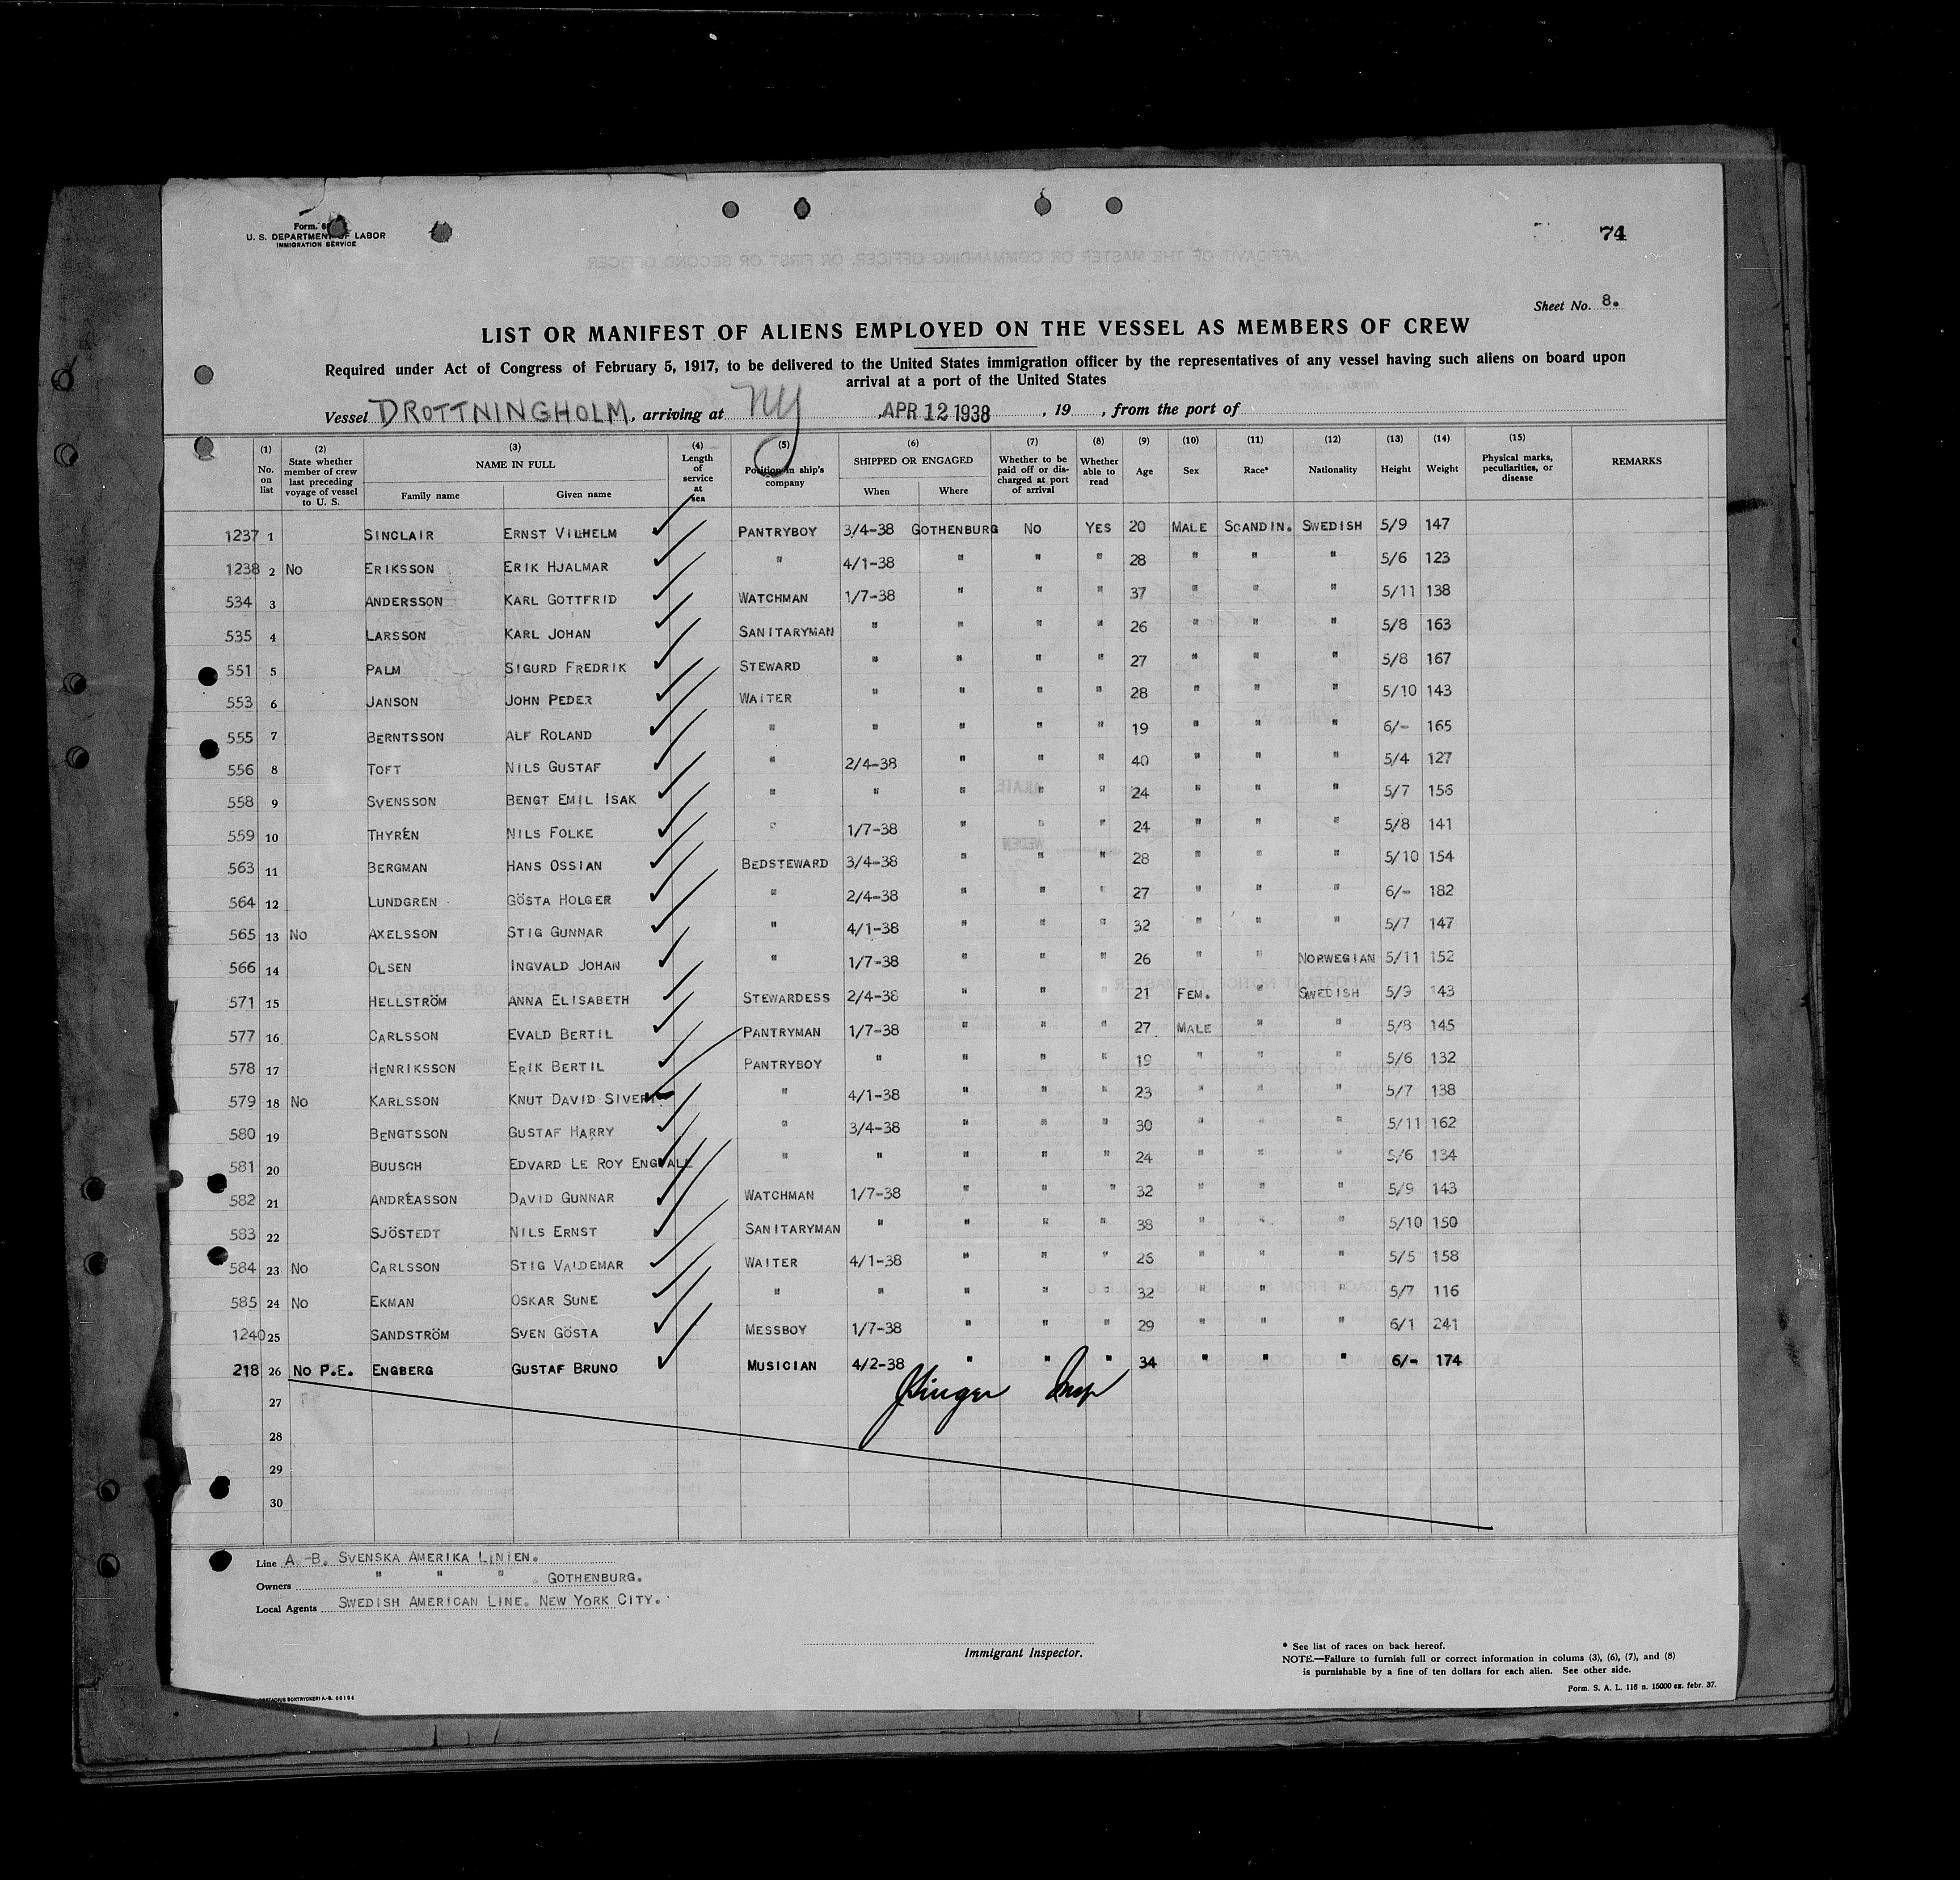 Form. 6
U. S. DEPARTMENT OF LABOR
IMMIGRATION SERVICE
74
Sheet No. 8.
LIST OR MANIFEST OF ALIENS EMPLOYED ON THE VESSEL AS MEMBERS OF CREW
Required under Act of Congress of February 5, 1917, to be delivered to the United States immigration officer by the representatives of any vessel having such aliens on board upon
arrival at a port of the United States
Vessel DROTTNINGHOLM, arriving at NY, APR 12 1938, 19 , from the port of
(1) No. on list (2) State whether member of crew last preceding voyage of vessel to U. S. (3) NAME IN FULL Family name Given name (4) Length of service at sea (5) Position in ship's company (6) SHIPPED OR ENGAGED When Where (7) Whether to be paid off or discharged at port of arrival (8) Whether able to read (9) Age (10) Sex (11) Race* (12) Nationality (13) Height (14) Weight (15) Physical marks, peculiarities, or disease REMARKS
1237 1 SINCLAIR ERNST VILHELM PANTRYBOY 3/4-38 GOTHENBURG NO YES 20 MALE SCANDIN. SWEDISH 5/9 147
1238 2 NO ERIKSSON ERIK HJALMAR " 4/1-38 " " " 28 " " " 5/6 123
534 3 ANDERSSON KARL GOTTFRID WATCHMAN 1/7-38 " " " 37 " " " 5/11 138
535 4 LARSSON KARL JOHAN SANITARYMAN " " " " 26 " " " 5/8 163
551 5 PALM SIGURD FREDRIK STEWARD " " " " 27 " " " 5/8 167
553 6 JANSON JOHN PEDER WAITER " " " " 28 " " " 5/10 143
555 7 BERNTSSON ALF ROLAND " " " " " 19 " " " 6/- 165
556 8 TOFT NILS GUSTAF " 2/4-38 " " " 40 " " " 5/4 127
558 9 SVENSSON BENGT EMIL ISAK " " " " " 24 " " " 5/7 156
559 10 THYRÉN NILS FOLKE " 1/7-38 " " " 24 " " " 5/8 141
563 11 BERGMAN HANS OSSIAN BEDSTEWARD 3/4-38 " " " 28 " " " 5/10 154
564 12 LUNDGREN GÖSTA HOLGER " 2/4-38 " " " 27 " " " 6/- 182
565 13 NO AXELSSON STIG GUNNAR " 4/1-38 " " " 32 " " " 5/7 147
566 14 OLSEN INGVALD JOHAN " 1/7-38 " " " 26 " " NORWEGIAN 5/11 152
571 15 HELLSTRÖM ANNA ELISABETH STEWARDESS 2/4-38 " " " 21 FEM. " SWEDISH 5/9 143
577 16 CARLSSON EVALD BERTIL PANTRYMAN 1/7-38 " " " 27 MALE " " 5/8 145
578 17 HENRIKSSON ERIK BERTIL PANTRYBOY " " " " 19 " " " 5/6 132
579 18 NO KARLSSON KNUT DAVID SIVERT " 4/1-38 " " " 23 " " " 5/7 138
580 19 BENGTSSON GUSTAF HARRY " 3/4-38 " " " 30 " " " 5/11 162
581 20 BUUSCH EDVARD LE ROY ENGVALL " " " " " 24 " " " 5/6 134
582 21 ANDRÉASSON DAVID GUNNAR WATCHMAN 1/7-38 " " " 32 " " " 5/9 143
583 22 SJÖSTEDT NILS ERNST SANITARYMAN " " " " 38 " " " 5/10 150
584 23 NO CARLSSON STIG VALDEMAR WAITER 4/1-38 " " " 26 " " " 5/5 158
585 24 NO EKMAN OSKAR SUNE " " " " " 32 " " " 5/7 116
1240 25 SANDSTRÖM SVEN GÖSTA MESSBOY 1/7-38 " " " 29 " " " 6/1 241
218 26 NO P.E. ENGBERG GUSTAF BRUNO MUSICIAN 4/2-38 " " " 34 " " " 6/- 174
27
28
29
30
Line A.-B. SVENSKA AMERIKA LINIEN.
Owners " " " . GOTHENBURG.
Local Agents SWEDISH AMERICAN LINE. NEW YORK CITY.
Immigrant Inspector.
* See list of races on back hereof.
NOTE.—Failure to furnish full or correct information in colums (3), (6), (7), and (8)
is punishable by a fine of ten dollars for each alien. See other side.
Form. S. A. L. 116 n. 15000 ex. febr. 37.
BOKTRYCKERI A.-B. 60194